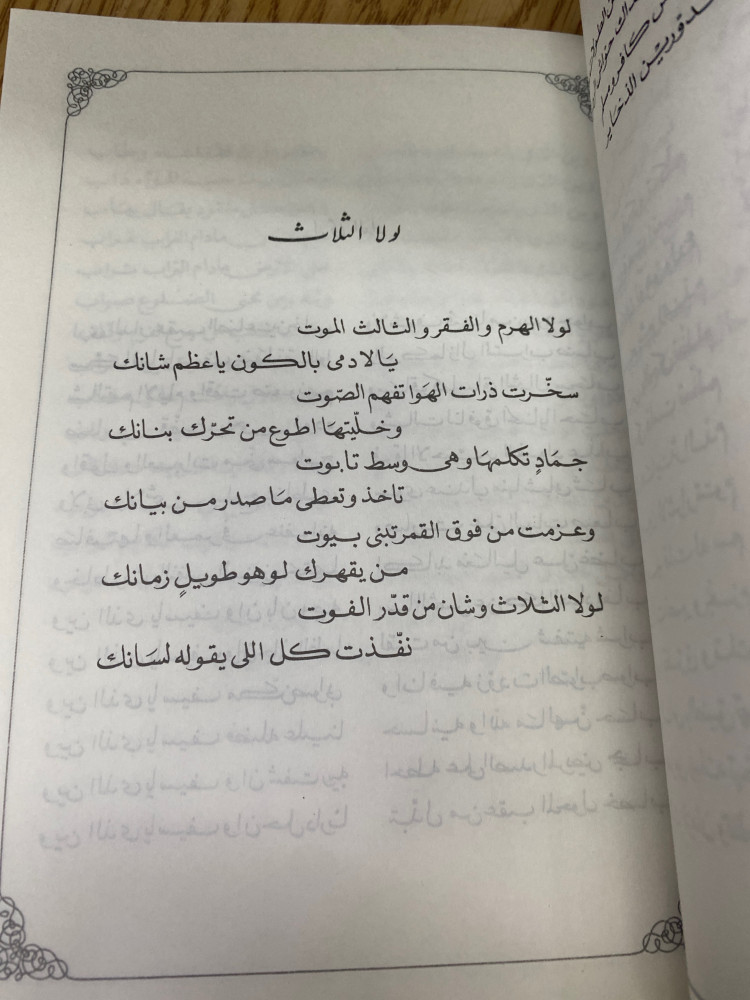 لولا الثلاث
لولا الهرم والفقر والثالث الموت
يالادمى بالكون ياعظم شانك
سخّرت ذرات الهَوا تفهم الصّوت
وخلّيتهَا اطوع من تحرّك بنانك
جمَادٍ تكلمهَا وهى وسط تابوت
تاخذ وتعطى مَا صدر من بيانك
وعزمت من فوق القمر تبنى بيوت
من يقهرك لو هو طويلٍ زمانك
لولا الثلاث وشان من قدّر الفوت
نفّذت كل اللى يقوله لسَانك